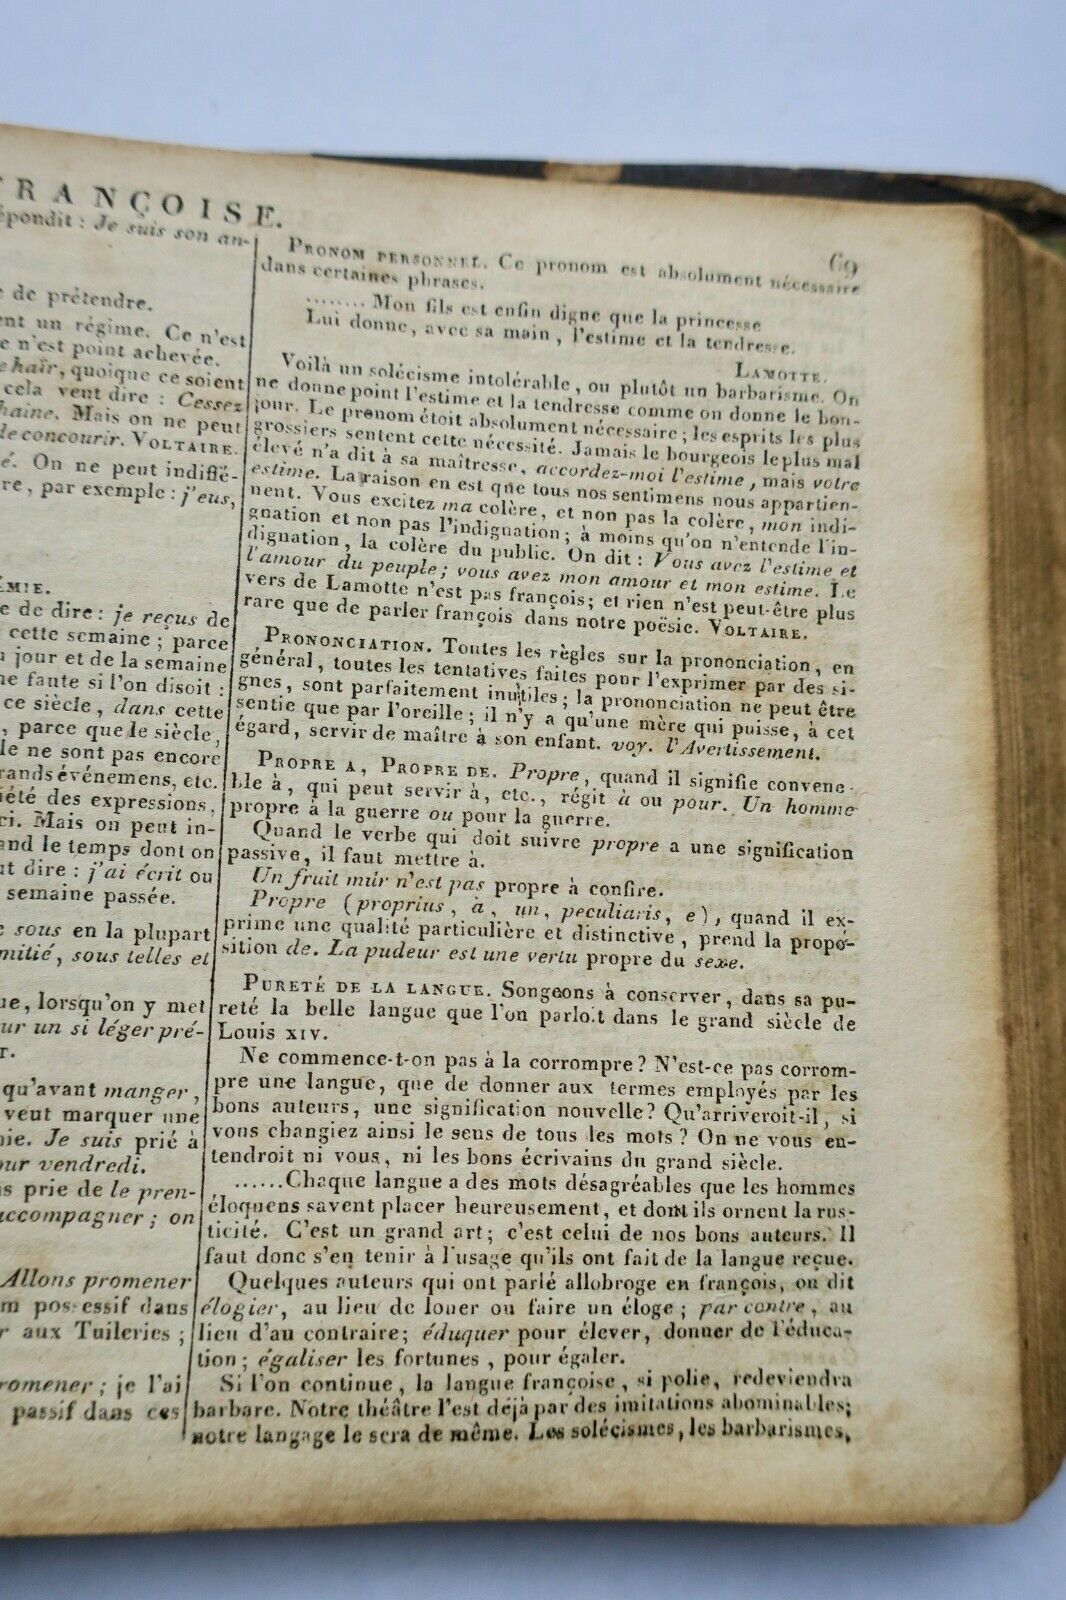 FRANÇOISE.
69
épondit : Je suis son an-
de prétendre.
ent un régime. Ce n'est
e n'est point achevée.
haïr, quoique ce soient
cela veut dire : Cessez
haine. Mais on ne peut
de concourir. VOLTAIRE.
é. On ne peut indiffé-
re, par exemple : j'eus,
ÉMIE.
e de dire : je reçus de
cette semaine ; parce
jour et de la semaine
ne faute si l'on disoit :
ce siècle, dans cette
, parce que le siècle,
le ne sont pas encore
grands événemens, etc.
iété des expressions,
ci. Mais on peut in-
and le temps dont on
t dire : j'ai écrit ou
semaine passée.
sous en la plupart
mitié, sous telles et
ue, lorsqu'on y met
ur un si léger pré-
r.
qu'avant manger,
veut marquer une
nie. Je suis prié à
our vendredi.
s prie de le pren-
accompagner ; on
Allons promener
m possessif dans
r aux Tuileries ;
romener ; je l'ai
passif dans ces
PRONOM PERSONNEL. Ce pronom est absolument nécessaire
dans certaines phrases.
........ Mon fils est enfin digne que la princesse
Lui donne, avec sa main, l'estime et la tendresse.
LAMOTTE.
Voilà un solécisme intolérable, ou plutôt un barbarisme. On
ne donne point l'estime et la tendresse comme on donne le bon-
jour. Le pronom étoit absolument nécessaire ; les esprits les plus
grossiers sentent cette nécessité. Jamais le bourgeois le plus mal
élevé n'a dit à sa maîtresse, accordez-moi l'estime, mais votre
estime. La raison en est que tous nos sentimens nous appartien-
nent. Vous excitez ma colère, et non pas la colère, mon indi-
gnation et non pas l'indignation ; à moins qu'on n'entende l'in-
dignation, la colère du public. On dit : Vous avez l'estime et
l'amour du peuple ; vous avez mon amour et mon estime. Le
vers de Lamotte n'est pas françois ; et rien n'est peut-être plus
rare que de parler françois dans notre poësie. VOLTAIRE.
PRONONCIATION. Toutes les règles sur la prononciation, en
général, toutes les tentatives faites pour l'exprimer par des si-
gnes, sont parfaitement inutiles ; la prononciation ne peut être
sentie que par l'oreille ; il n'y a qu'une mère qui puisse, à cet
égard, servir de maître à son enfant. voy. l'Avertissement.
PROPRE A, PROPRE DE. Propre, quand il signifie convena-
ble à, qui peut servir à, etc., régit à ou pour. Un homme
propre à la guerre ou pour la guerre.
Quand le verbe qui doit suivre propre a une signification
passive, il faut mettre à.
Un fruit mûr n'est pas propre à confire.
Propre (proprius, a, un, peculiaris, e), quand il ex-
prime une qualité particulière et distinctive, prend la propo-
sition de. La pudeur est une vertu propre du sexe.
PURETÉ DE LA LANGUE. Songeons à conserver, dans sa pu-
reté la belle langue que l'on parloit dans le grand siècle de
Louis XIV.
Ne commence-t-on pas à la corrompre ? N'est-ce pas corrom-
pre une langue, que de donner aux termes employés par les
bons auteurs, une signification nouvelle ? Qu'arriveroit-il, si
vous changiez ainsi le sens de tous les mots ? On ne vous en-
tendroit ni vous, ni les bons écrivains du grand siècle.
......Chaque langue a des mots désagréables que les hommes
éloquens savent placer heureusement, et dont ils ornent la rus-
ticité. C'est un grand art ; c'est celui de nos bons auteurs. Il
faut donc s'en tenir à l'usage qu'ils ont fait de la langue reçue.
Quelques auteurs qui ont parlé allobroge en françois, ou dit
élogier, au lieu de louer ou faire un éloge ; par contre, au
lieu d'au contraire ; éduquer pour élever, donner de l'éduca-
tion ; égaliser les fortunes, pour égaler.
Si l'on continue, la langue françoise, si polie, redeviendra
barbare. Notre théâtre l'est déjà par des imitations abominables ;
notre langage le sera de même. Les solécismes, les barbarismes,